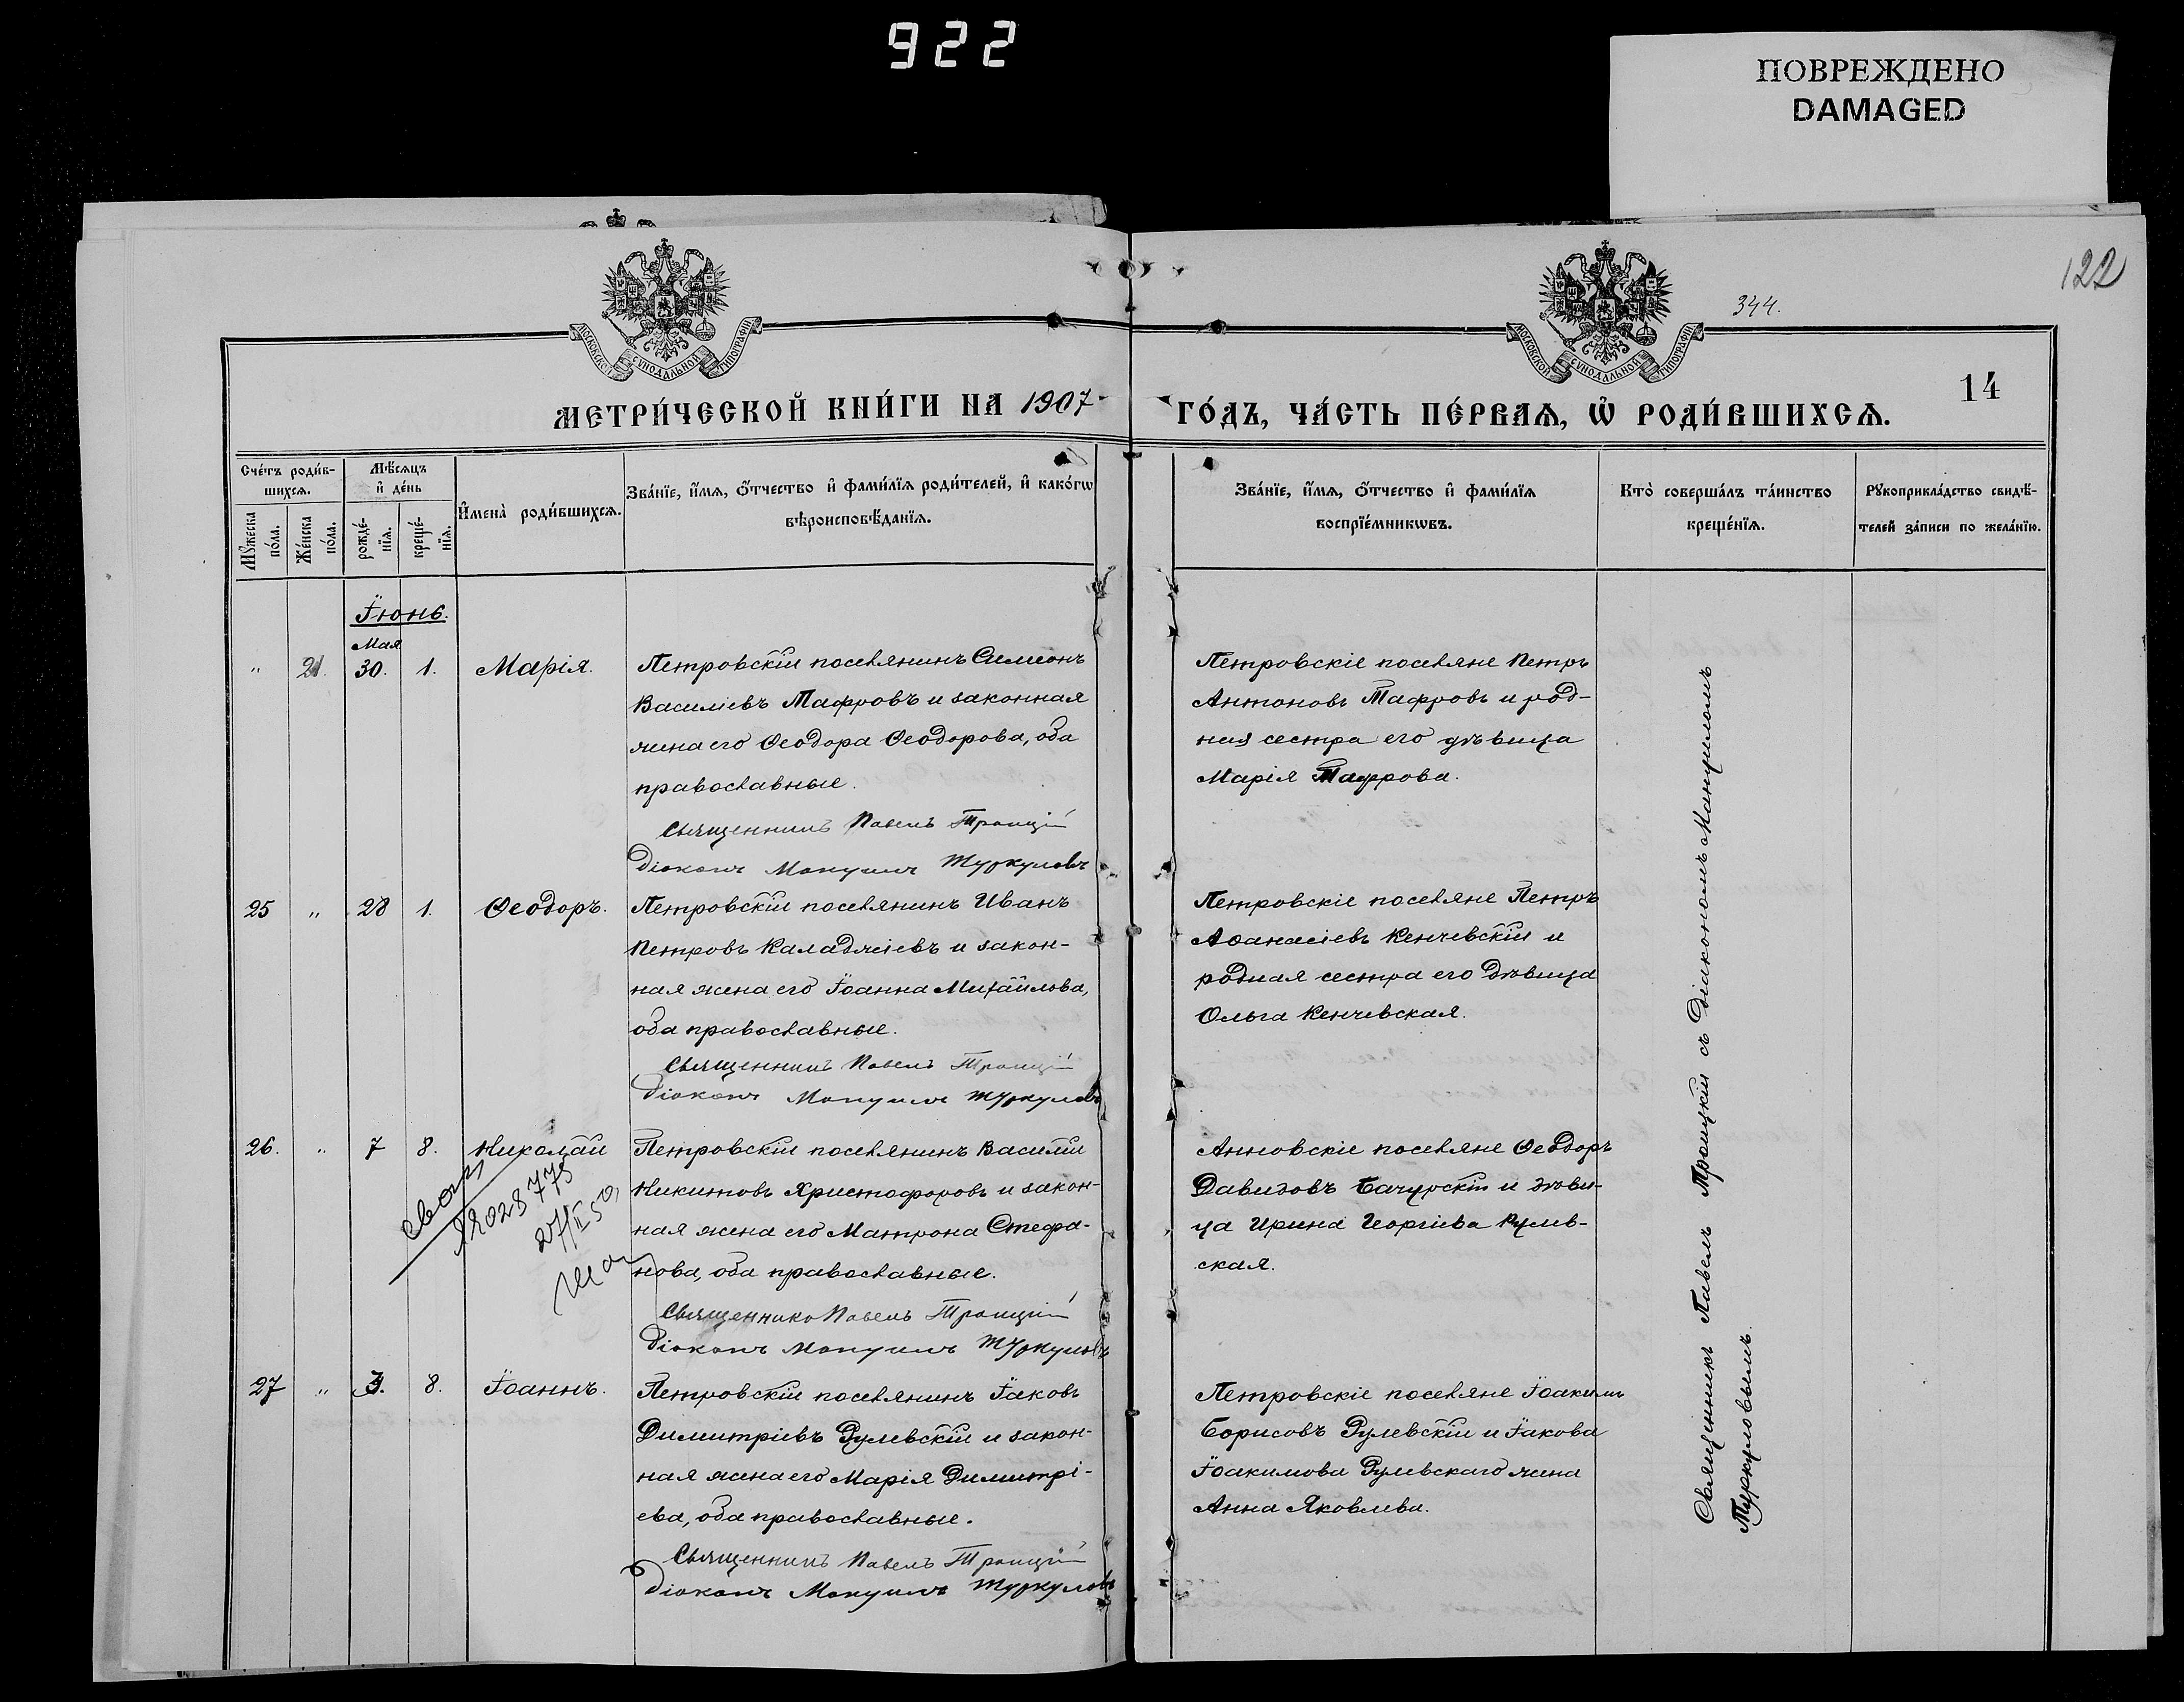 922
ПОВРЕЖДЕНО
DAMAGED
122
344.
МОСКОВСКОЙ СѴНОДАЛЬНОЙ ТИПОГРАФІИ
МОСКОВСКОЙ СѴНОДАЛЬНОЙ ТИПОГРАФІИ
14
МЕТРИ́ЧЕСКОЙ КНИ́ГИ НА 1907
ГО́ДЪ, ЧА́СТЬ ПЕ́РВАѦ, Ѽ РОДИ́ВШИХСѦ.
Сче́тъ роди́в-
шихсѧ.
Мꙋ́жеска
по́ла.
Же́нска
по́ла.
Мѣ́сѧцъ
и҆ де́нь
рожде́-
нїѧ.
креще́-
нїѧ.
И҆мена̀ роди́вшихсѧ.
Зва́нїе, и҆́мѧ, ѻ҆́тчество и҆ фами́лїѧ роди́телей, и҆ како́гѡ
вѣроисповѣ́данїѧ.
Зва́нїе, и҆́мѧ, ѻ҆́тчество и҆ фами́лїѧ
воспрїе́мникѡвъ.
Кто̀ соверша́лъ та́инство
креще́нїѧ.
Рꙋкоприкла́дство свидѣ́-
телей за́писи по жела́нїю.
Іюнь.
Мая
" 21. 30. 1. Марія.
Петровскій поселянинъ Симеонъ
Василіевъ Тафровъ и законная
жена его Ѳеодора Ѳеодорова, оба
православные.
Священникъ Павелъ Троицкій
Діаконъ Мануилъ Туркуловъ
Петровскіе поселяне Петръ
Антоновъ Тафровъ и род-
ная сестра его дѣвица
Марія Тафрова.
25 " 28 1. Ѳеодоръ.
Петровскій поселянинъ Иванъ
Петровъ Каладжіевъ и закон-
ная жена его Іоанна Михайлова,
оба православные.
Священникъ Павелъ Троицкій
Діаконъ Мануилъ Туркуловъ
Петровскіе поселяне Петръ
Аѳанасіевъ Кенчевскій и
родная сестра его дѣвица
Ольга Кенчевская.
26. " 7 8. Николай
Петровскій поселянинъ Василій
Никитовъ Христофоровъ и закон-
ная жена его Матрона Стефа-
нова, оба православные.
Священникъ Павелъ Троицкій
Діаконъ Мануилъ Туркуловъ
Анновскіе поселяне Ѳеодоръ
Давидовъ Бачурскій и дѣви-
ца Ирина Георгіева Рулев-
ская.
27 " 3. 8. Іоаннъ.
Петровскій поселянинъ Іаковъ
Димитріевъ Рулевскій и закон-
ная жена его Марія Димитрі-
ева, оба православные.
Священникъ Павелъ Троицкій
Діаконъ Мануилъ Туркуловъ
Петровскіе поселяне Іоакимъ
Борисовъ Рулевскій и Іакова
Іоакимова Рулевскаго жена
Анна Яковлева.
Священникъ Павелъ Троицкій съ Діакономъ Мануиломъ
Туркуловымъ.